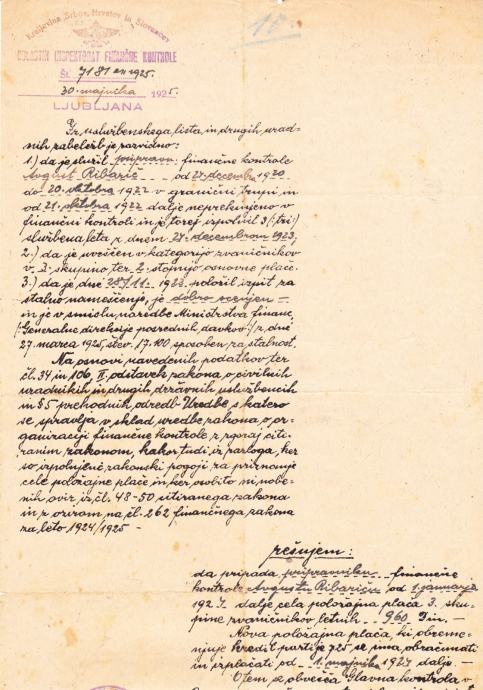 Kraljevina Srbov, Hrvatov in Slovencev
OBLASTNI INSPEKTORAT FINANČNE KONTROLE
Št. 7181 1925.
30. majnika 1925.
LJUBLJANA
10
Iz uslužbenskega lista in drugih urad-
nih zabeležb je razvidno:
1.) da je služil pripravn. finančne kontrole
Avgust Ribarič od 24. decembra 1920
do 20. oktobra 1922 v granični trupi in
od 21. oktobra 1922 dalje neprekinjeno v
finančni kontroli in je torej izpolnil 3 (tri)
službena leta z dnem 24. decembrom 1923,
2.) da je uvrščen v kategorijo zvaničnikov
v I. skupino ter 2. stopnjo osnovne plače.
3.) da je dne 28/11. 1922. položil izpit za
stalno nameščenje, je dobro ocenjen -
in je v smislu naredbe Ministrstva financ,
/:Generalne direkcije posrednih davkov:/ z dne
27. marca 1925, štev. 17.100 sposoben za stalnost.
Na osnovi navedenih podatkov ter
čl. 34 in 106, II. odstavek zakona o civilnih
uradnikih in drugih državnih uslužbencih
in § 5 prehodnih odredb Uredbe, s katero
se spravlja v sklad uredbe zakona o or-
ganizaciji finančne kontrole z zgoraj citi-
ranim zakonom, kakor tudi iz razloga, ker
so izpolnjeni zakonski pogoji za priznanje
cele položajne plače in ker osobito ni nobe-
nih ovir iz čl. 48-50 citiranega zakona
in z ozirom na čl. 262 finančnega zakona
za leto 1924/1925 -
rešujem:
da pripada pripravniku finančne
kontrole Avgustu Ribariču od 1. januarja
192 dalje cela položajna plača 3. sku-
pine zvaničnikov letnih 960 Din. -
Nova položajna plača, ki obreme-
njuje kredit partije 725 se ima, obračunati
in izplačati od 1. majnika 192 dalje. -
O tem se obvešča Glavna kontrola v